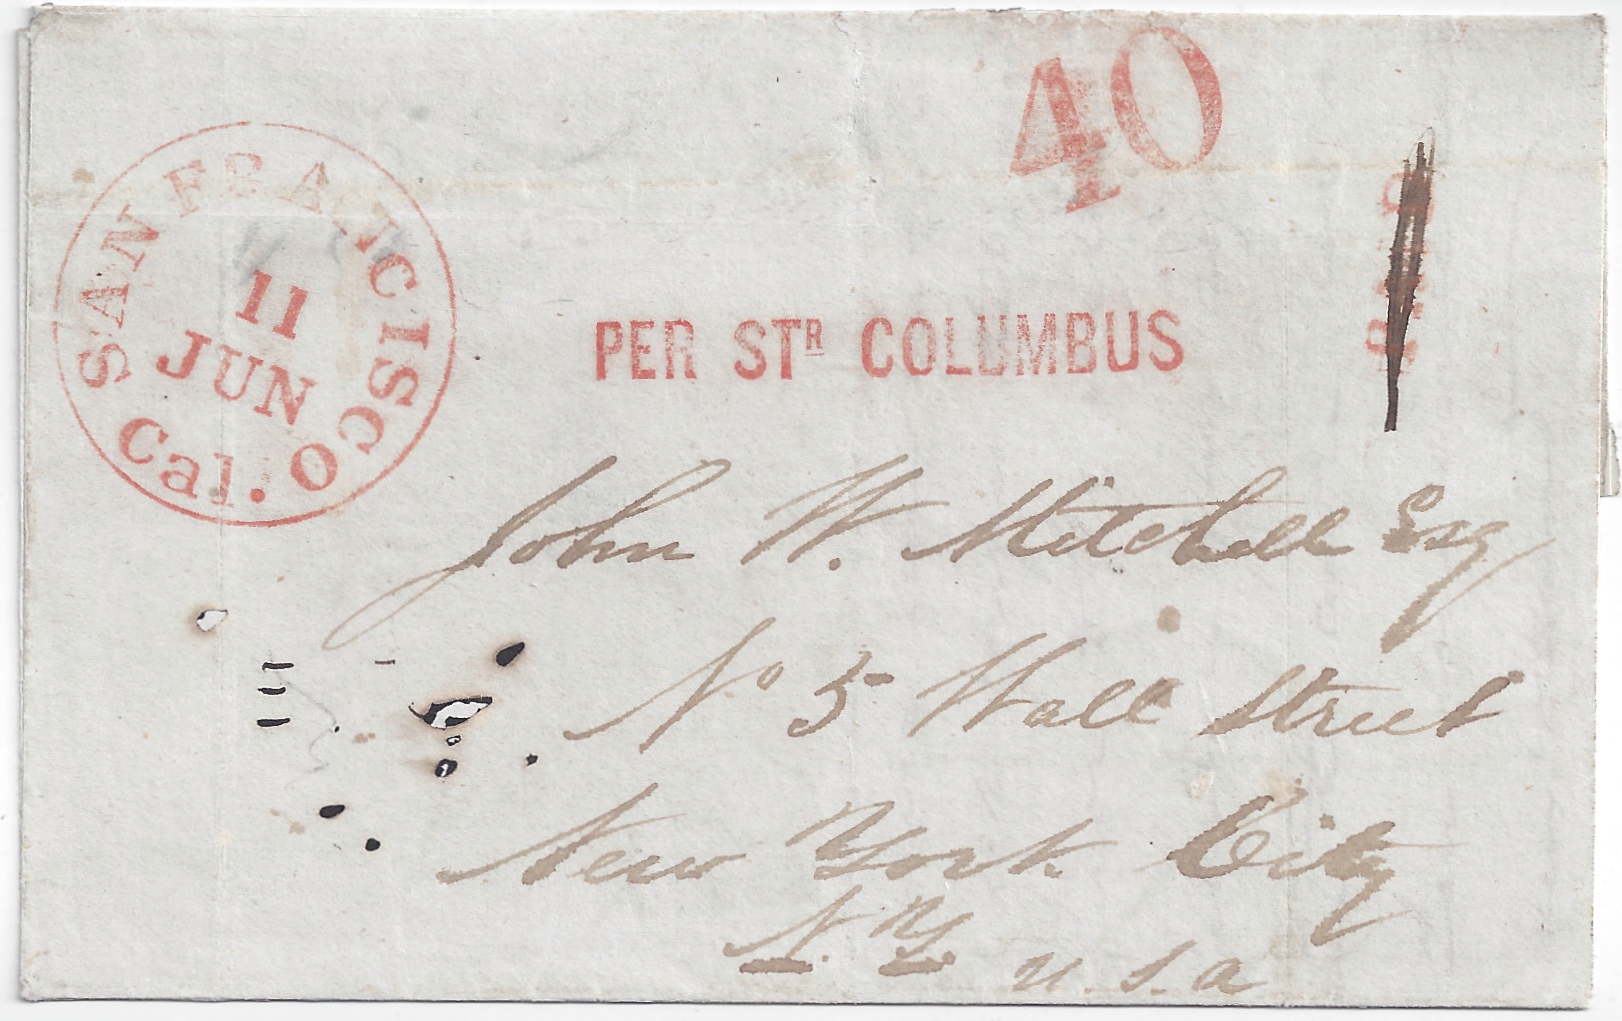 40
SAN FRANCISCO Cal.
11
JUN
PER STR COLUMBUS
John W. Mitchell Esq
No 5 Wall Street
New York City
N. Y.
U. S. A